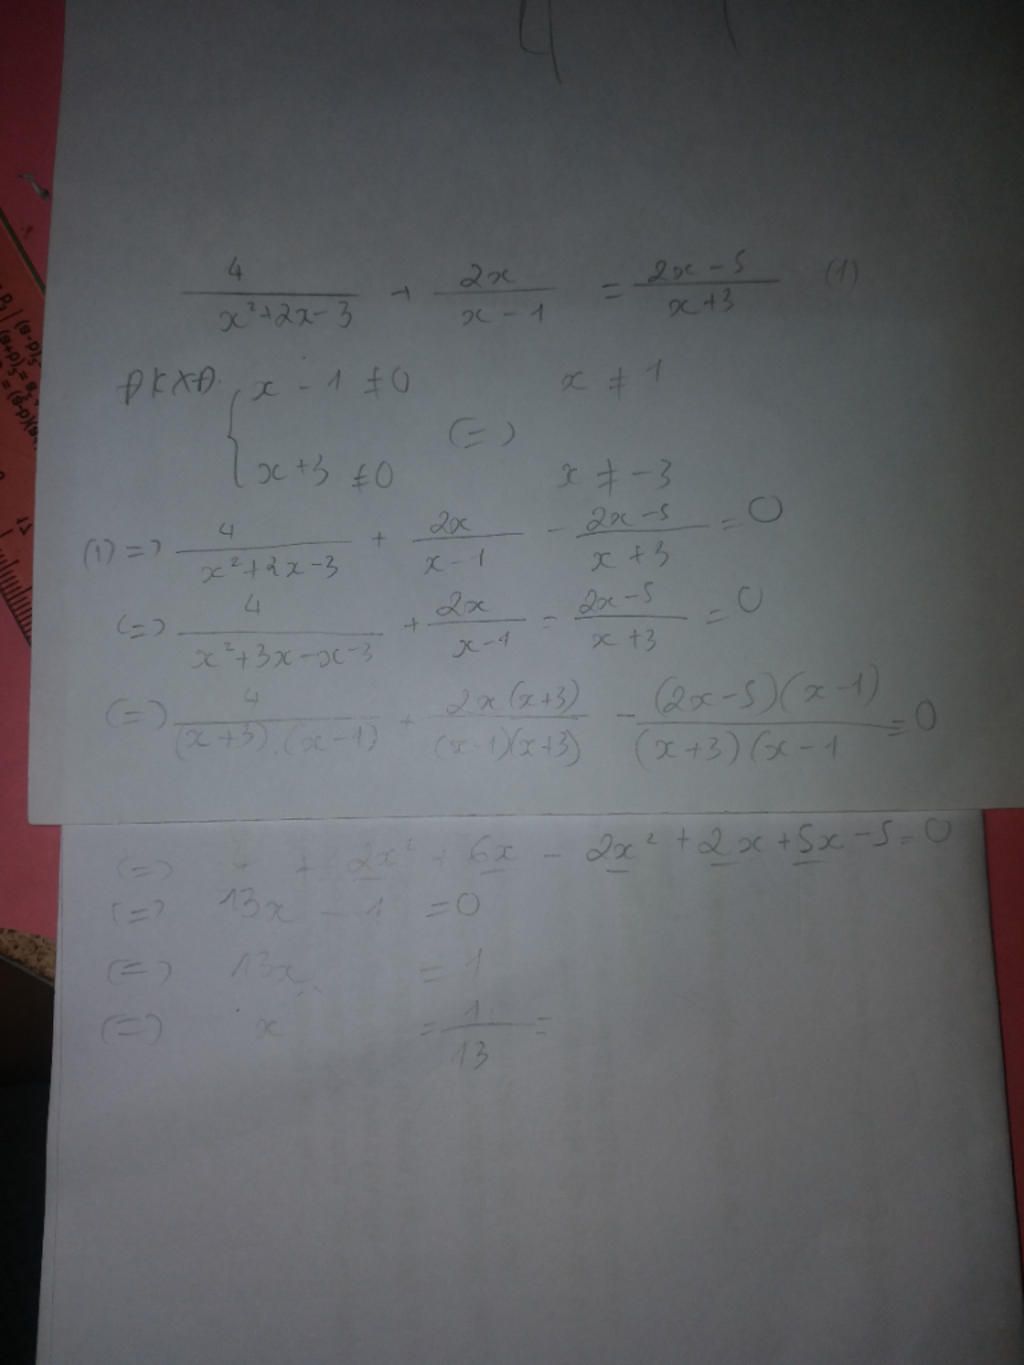 4/(x²+2x-3) + 2x/(x-1) = (2x-5)/(x+3) (1)
ĐKXĐ: { x - 1 ≠ 0 (=) x ≠ 1
x + 3 ≠ 0 x ≠ -3
(1) => 4/(x²+2x-3) + 2x/(x-1) - (2x-5)/(x+3) = 0
(=) 4/(x²+3x-x-3) + 2x/(x-1) - (2x-5)/(x+3) = 0
(=) 4/((x+3).(x-1)) + 2x(x+3)/((x-1)(x+3)) - (2x-5)(x-1)/((x+3)(x-1 = 0
(=) 4 + 2x² + 6x - 2x² + 2x + 5x - 5 = 0
(=) 13x - 1 = 0
(=) 13x = 1
(=) x = 1/13 =